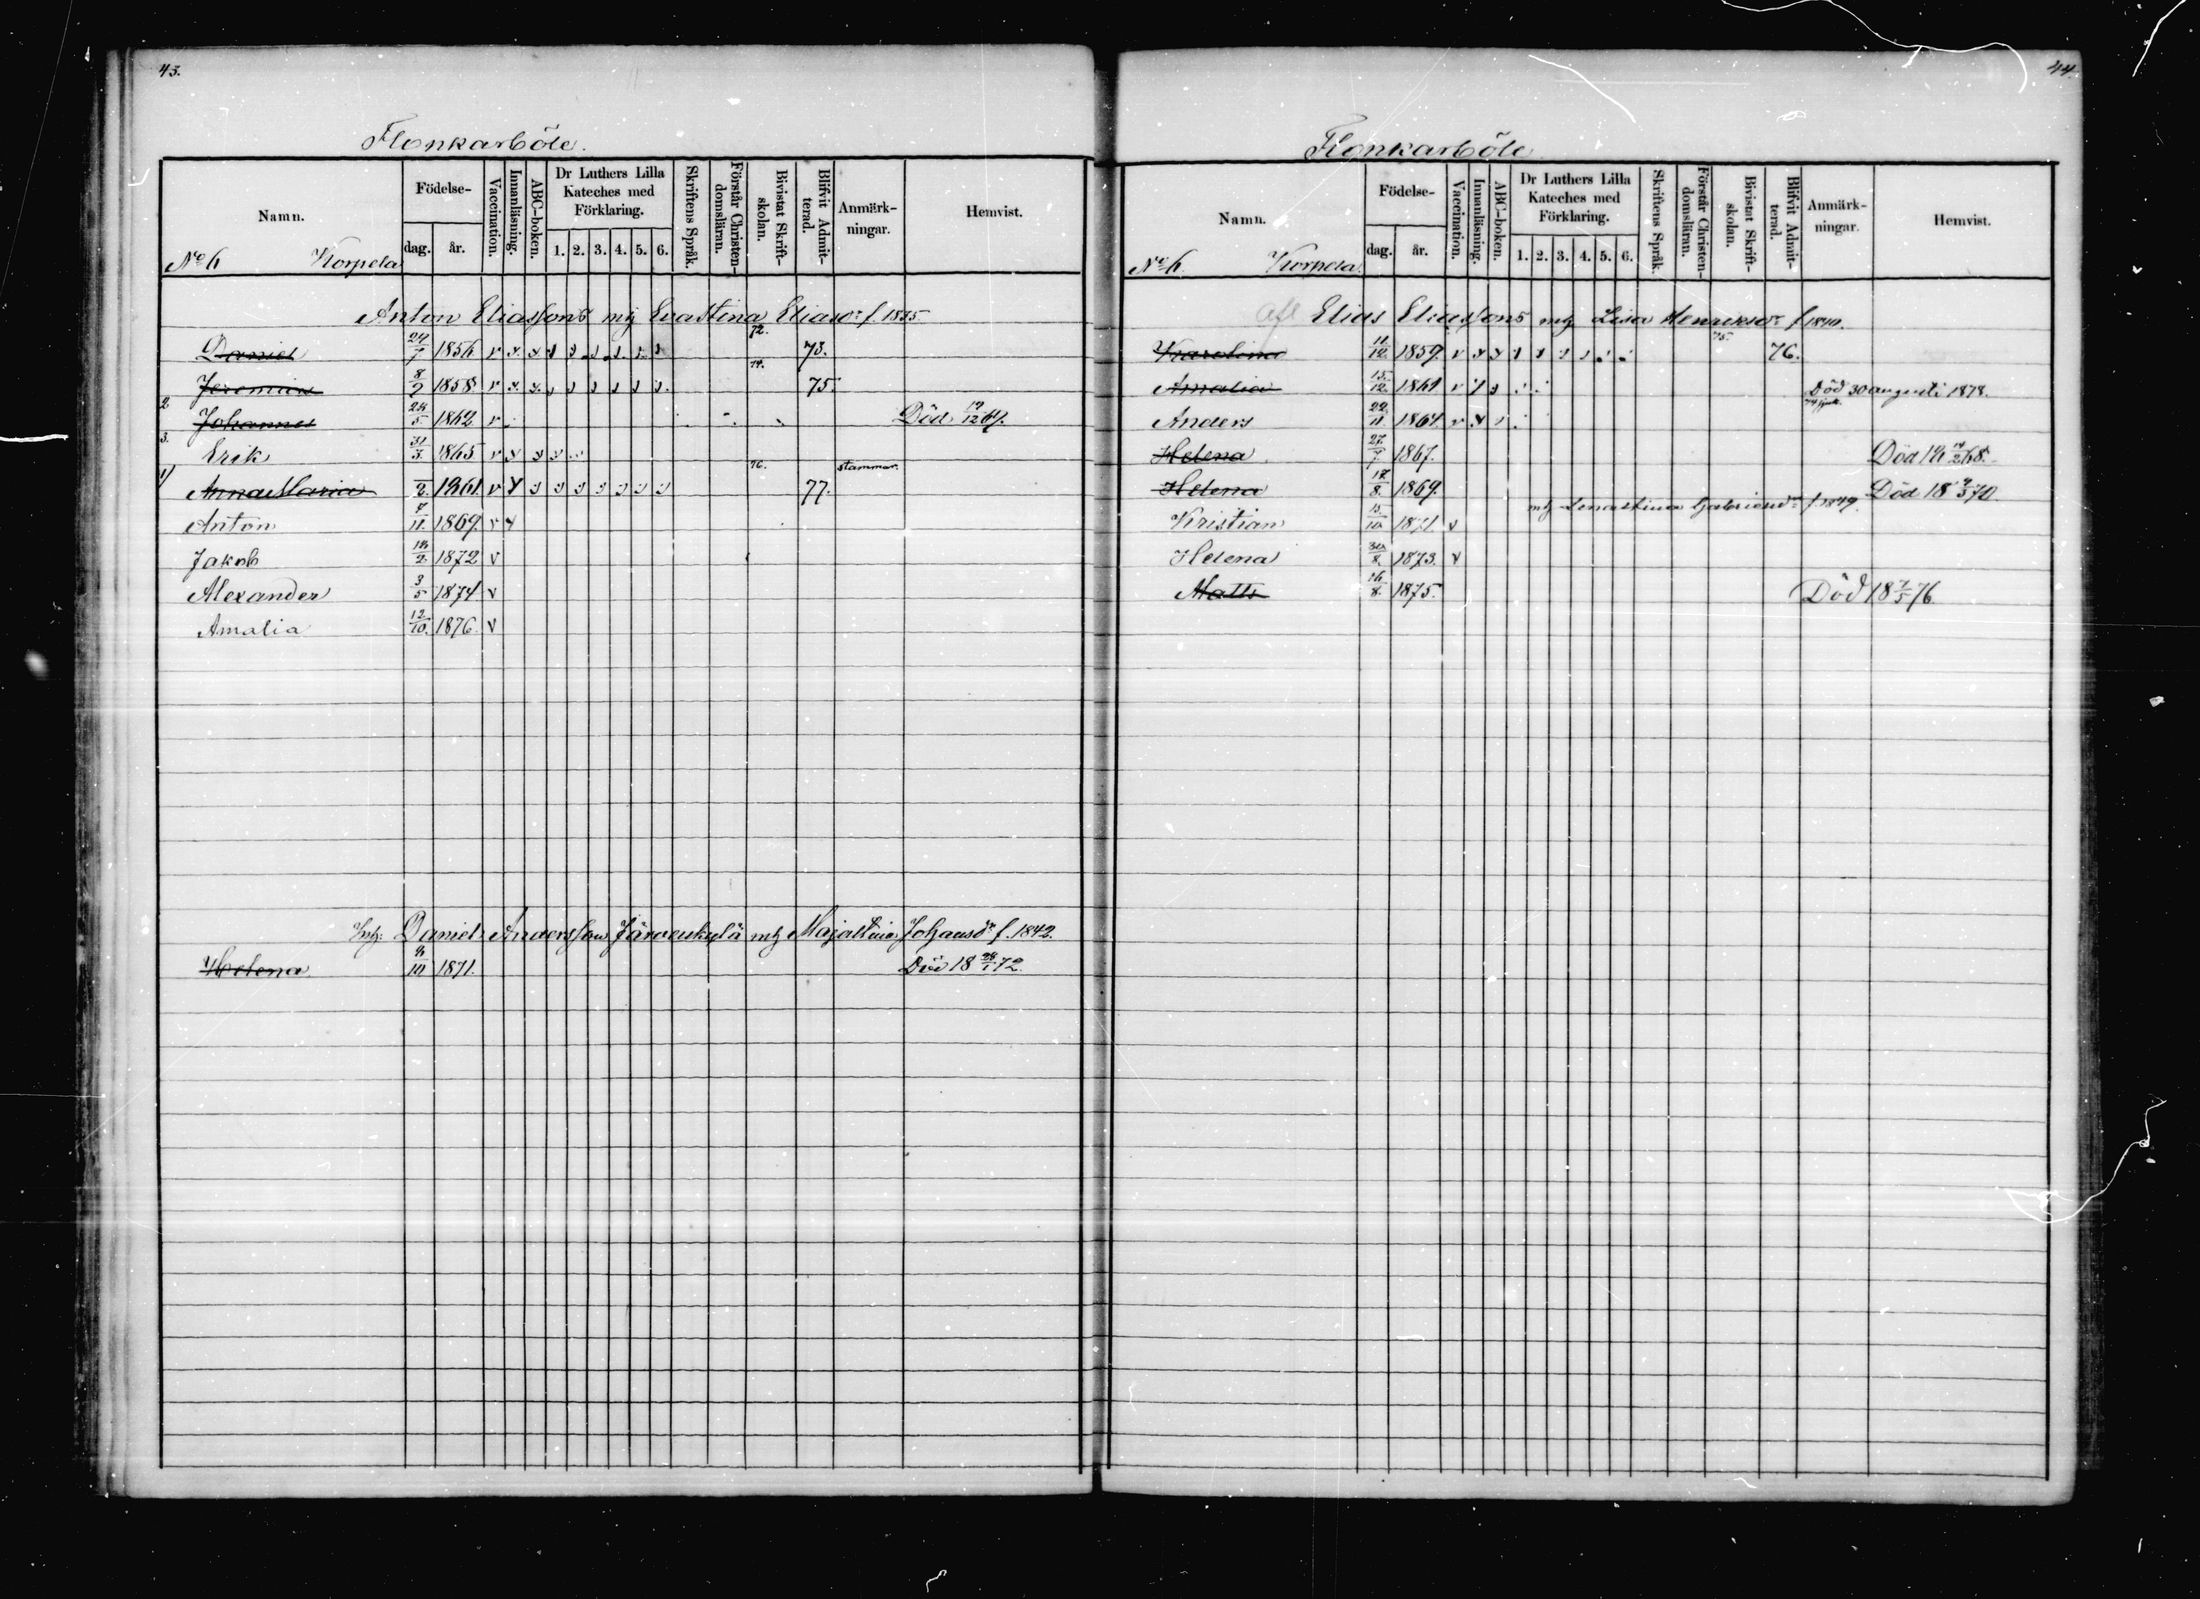 43.
Flonkarböle.
Namn. Födelse- dag. år. Vaccination. Innanläsning. ABC-boken. Dr Luthers Lilla Kateches med Förklaring. 1. 2. 3. 4. 5. 6. Skriftens Språk. Förstår Christen-domsläran. Bivistat Skrift-skolan. Blifvit Admit-terad. Anmärk-ningar. Hemvist.
No 6 Korpela
Anton Eliassons mg Evastina Eliasdr f. 1835
Daniel 24/7 1856 v 72. 73.
Jeremias 8/9 1858 v 74. 75.
2 Johannes 1862 v Död 67.
3. Erik 31/3 1865 v
1) Anna Maria 1861 v 76. 77. stammar.
Anton 7/11. 1869 v
Jakob 1872 v
Alexander 3/5 1874 v
Amalia 12/10. 1876. v
Inh: Daniel Andersson Järvenkylä mg Majastina Johansdr f. 1842.
Helena 1871. Död 18 28/1 72.
44.
Flonkarböle
Namn. Födelse- dag. år. Vaccination. Innanläsning. ABC-boken. Dr Luthers Lilla Kateches med Förklaring. 1. 2. 3. 4. 5. 6. Skriftens Språk. Förstår Christen-domsläran. Bivistat Skrift-skolan. Blifvit Admit-terad. Anmärk-ningar. Hemvist.
No 6 Korpela
Afl Elias Eliassons mg Lisa Henriksdr f 1840.
Karolina 11/12. 1859. v 75. 76.
Amalia 15/12. 1861 v Död 30 augusti 1878.
Anders 22/11 1864 v
Helena 27/7 1867. Död 18 68.
Helena 1869. Död 18 70
mg Lenastina Gabrielsdr f. 1849.
Kristian 1871. v
Helena 30/8. 1873. v
Matts 16/8. 1875. Död 18 7/5 76.